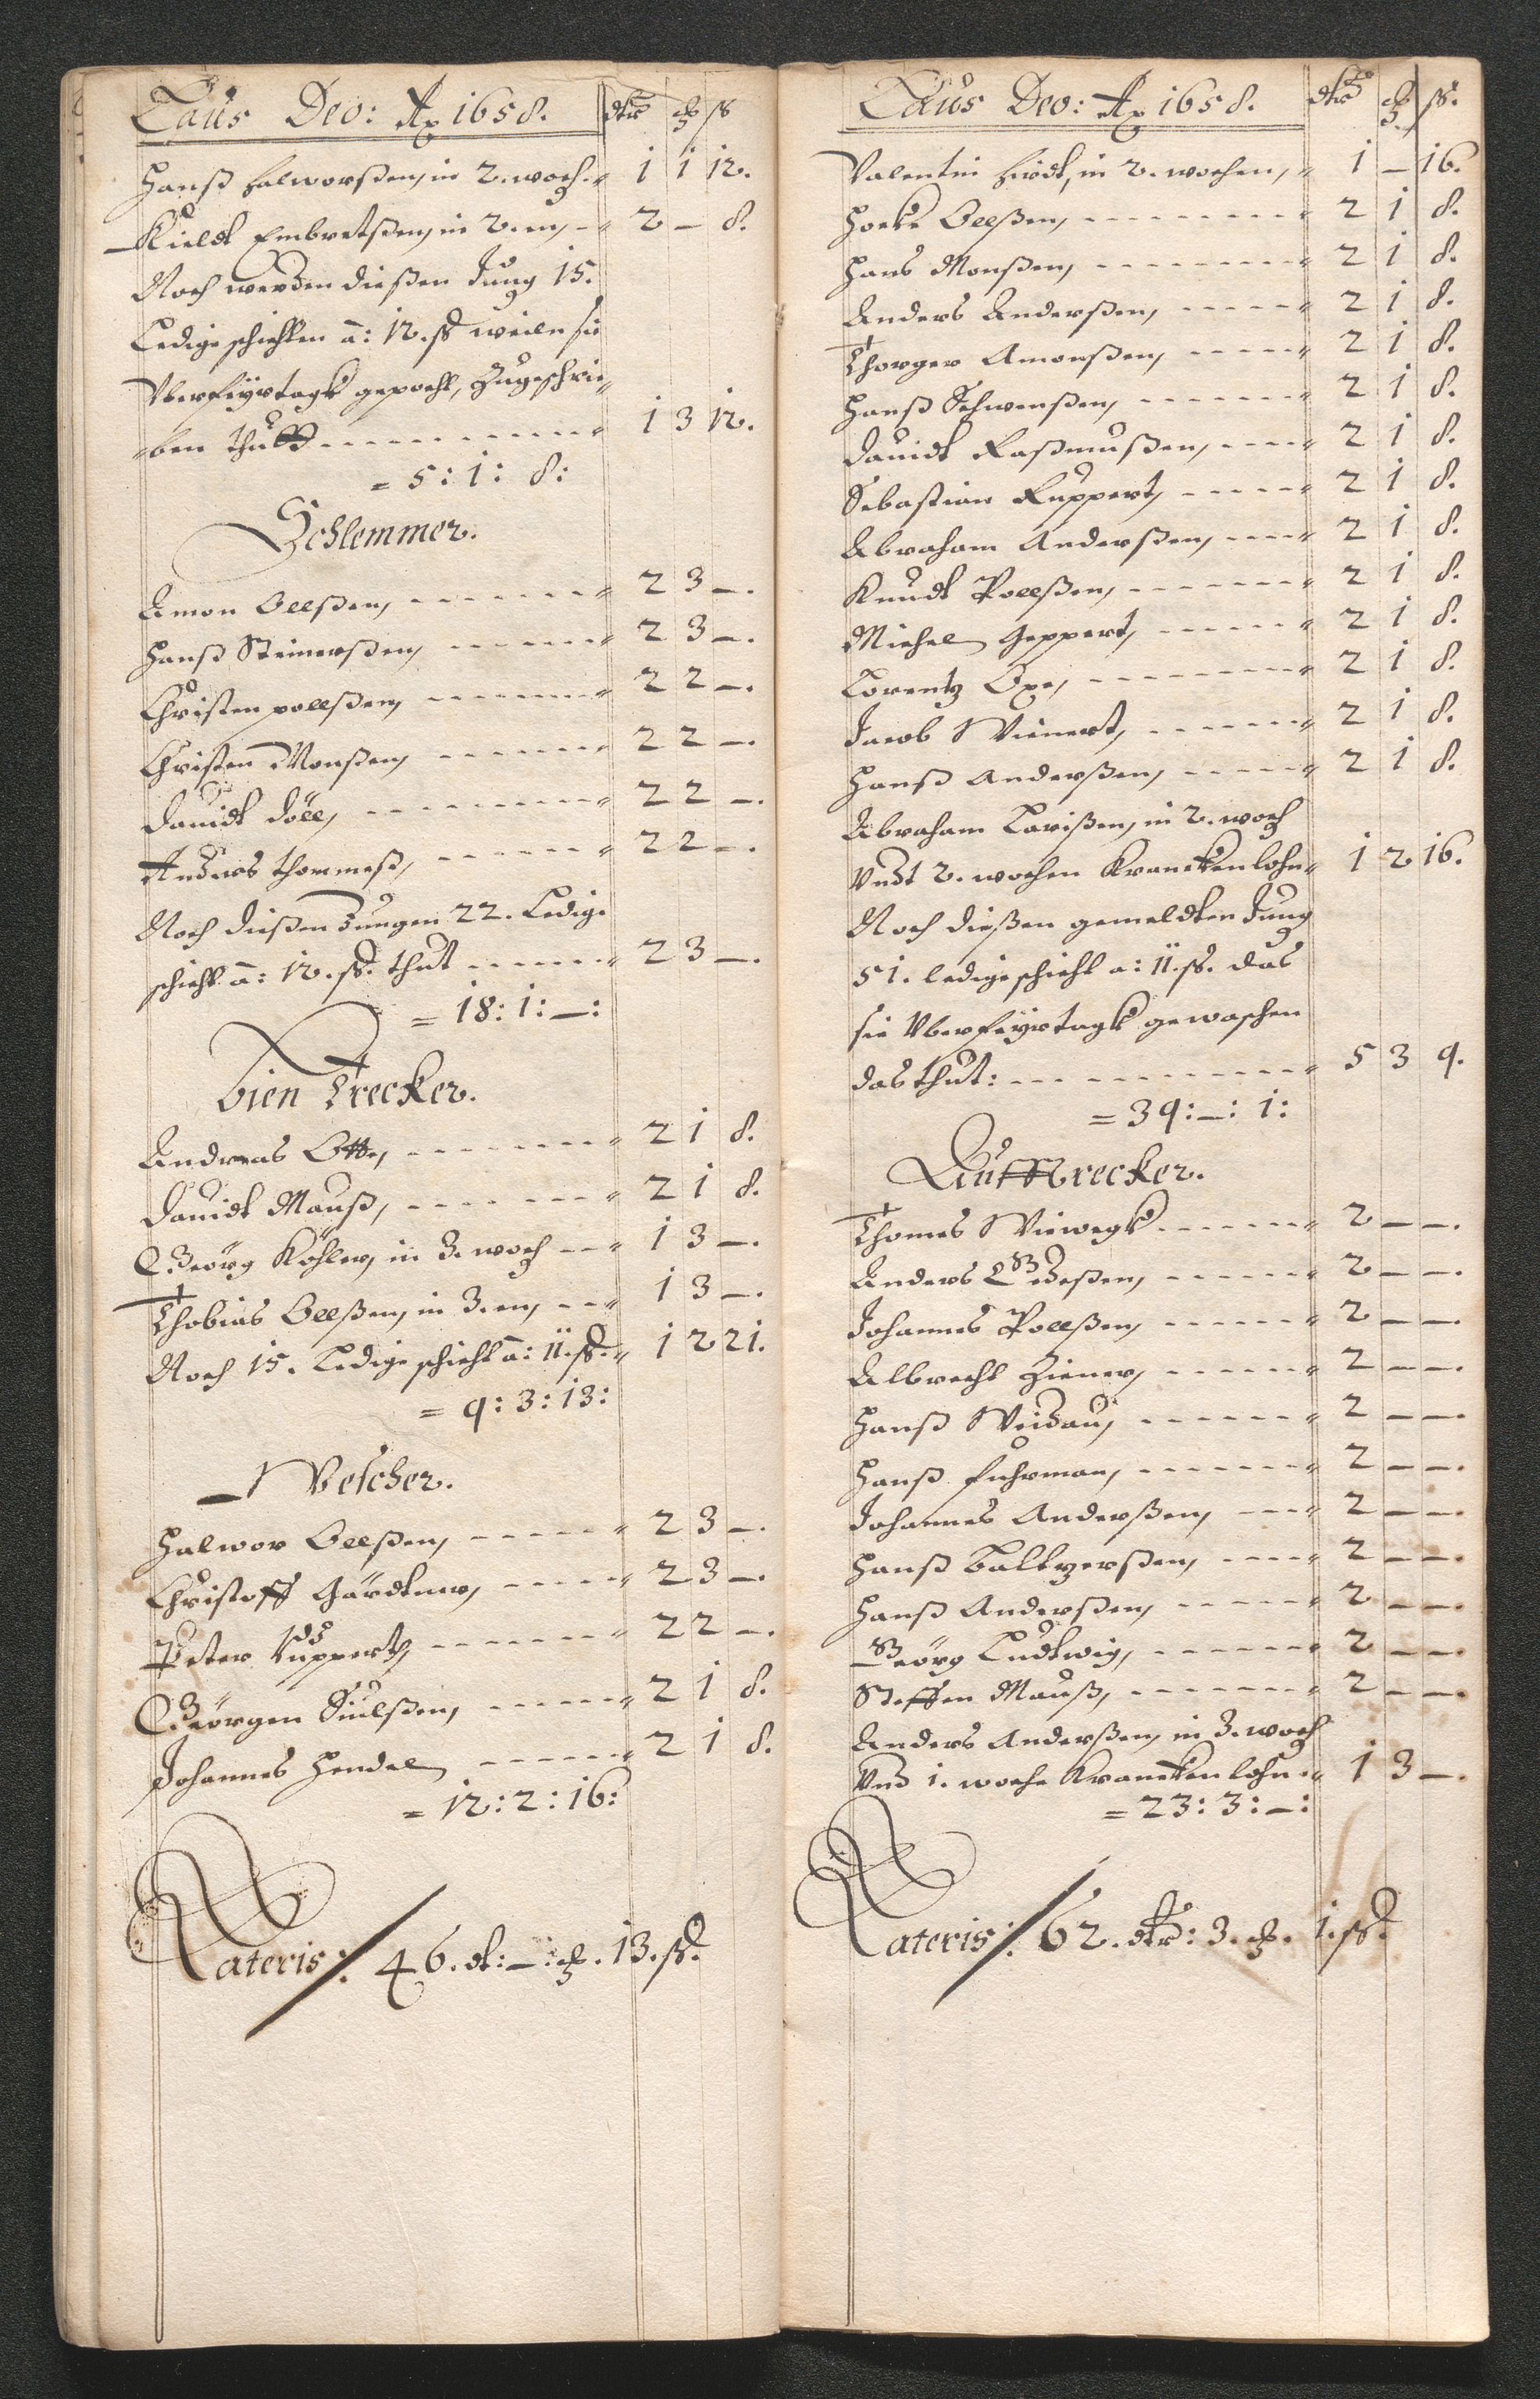 Laus Deo: Ao 1658. dlr ß
Hanß Halworßen, in 2. woch. 1 1 12.
Kieldt Embretßen, in 2.en, - 2 – 8.
Noch werden dießen Jung 15.
Ledige schichten â: 12. ß weiln sie
Vber feyrtagk gepocht, Zugeschrie-
-ben thutt 1 3 12.
= 5: 1: 8:
Schlemmer.
Amon Ollßen, 2 3 –.
Hanß Steinerßen, 2 3 –.
Christen pollßen, 2 2 –.
Christen Monßen, 2 2 –.
Dauidt Döll, 2 2 –.
Andreas Thommeß, 2 2 –.
Noch dießen Jungen 22. Ledige
schicht â: 12. ß. thut 2 3 –.
= 18: 1: –:
bien Trecker.
Andreas Otte, 2 1 8.
Dauidt Mauß, 2 1 8.
Geörg Köhler, in 3. woch 1 3 –.
Thobias Ollßen, in 3.en, 1 3 –.
Noch 15. Ledige schicht â: 11. ß. 1 2 21.
= 9: 3: 13:
Wescher.
Halwor Ollßen, 2 3 –.
Christoff Gärdtner, 2 3 –.
Peter Ruppert, 2 2 –.
Geörgen Siulßen, 2 1 8.
Johannes Hendel, 2 1 8.
= 12: 2: 16:
Lateris: 46. dl: –: . 13. ß.
Laus Deo: Ao 1658. dlr ß.
Valentin Hirdt, in 2. wochen, 1 – 16.
Houke Ollßen, 2 1 8.
Hans Monßen, 2 1 8.
Anders Anderßen, 2 1 8.
Thorger Amonßen, 2 1 8.
Hanß Schwenßen, 2 1 8.
Dauidt Raßmußen, 2 1 8.
Sebastian Ruppert, 2 1 8.
Abraham Anderßen, 2 1 8.
Knudt Pollßen, 2 1 8.
Michel Geppert, 2 1 8.
Lorentz Oxe, 2 1 8.
Jacob Wienert, 2 1 8.
Hanß Anderßen, 2 1 8.
Abraham Larißen, in 2. woch
Vndt 2. wochen Kranckenlohn 1 2 16.
Noch dießen gemeldten Jung
51. ledige schicht a: 11. ß. das
sie Vber feyrtagk gewaschen
das thut: 5 3 9.
= 39: –: 1:
Aufftrecker.
Thomas Viewegk 2 – –.
Anders 2 – –.
Johannes Pollßen, 2 – –.
Albrecht Ziener, 2 – –.
Hanß Weidau, 2 – –.
Hanß Fuhrman, 2 – –.
Johannes Anderßen, 2 – –.
Hanß Baltzerßen, 2 – –.
Hanß Anderßen, 2 – –.
Geörg Ludtwig, 2 – –.
Steffen Mauß, 2 – –.
Anders Anderßen, in 3. woch
Vnd 1. woche Krancken lohn 1 3 –.
= 23: 3: –:
Lateris: 62. dlr: 3. . 1. ß.